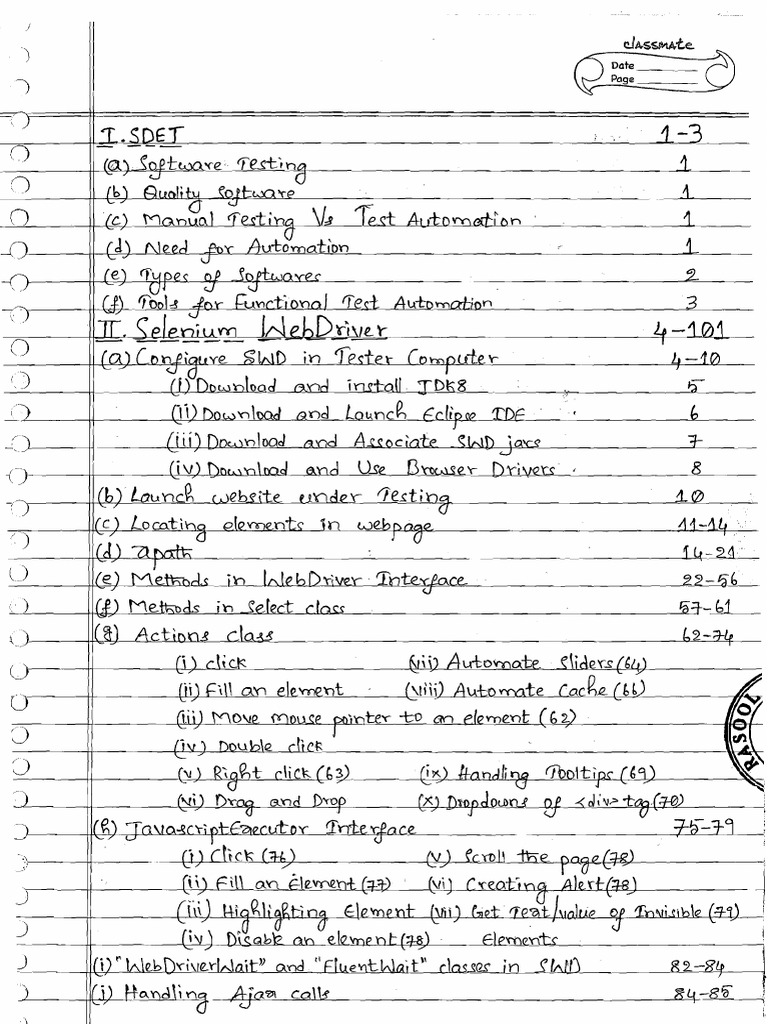 classmate
Date
Page
I. SDET 1-3
(a) Software Testing 1
(b) Quality Software 1
(c) Manual Testing Vs Test Automation 1
(d) Need for Automation 1
(e) Types of Softwares 2
(f) Tools for Functional Test Automation 3
II. Selenium WebDriver 4-101
(a) Configure SWD in Tester Computer 4-10
(i) Download and install JDK8 5
(ii) Download and Launch Eclipse IDE 6
(iii) Download and Associate SWD jars 7
(iv) Download and Use Browser Drivers 8
(b) Launch website under Testing 10
(c) Locating elements in webpage 11-14
(d) xpath 14-21
(e) Methods in WebDriver Interface 22-56
(f) Methods in Select class 57-61
(g) Actions class 62-74
(i) click (vii) Automate Sliders (64)
(ii) Fill an element (viii) Automate Cache (66)
(iii) Move mouse pointer to an element (62)
(iv) Double click
(v) Right click (63) (ix) Handling Tooltips (69)
(vi) Drag and Drop (x) Dropdowns of <div> tag (70)
RASOOL
(h) JavascriptExecutor Interface 75-79
(i) Click (76) (v) Scroll the page (78)
(ii) Fill an Element (77) (vi) Creating Alert (78)
(iii) Highlighting Element (vii) Get Text/value of Invisible (79)
(iv) Disable an element (78) Elements
(i) "WebDriverWait" and "FluentWait" classes in SWD 82-84
(j) Handling Ajax calls 84-85